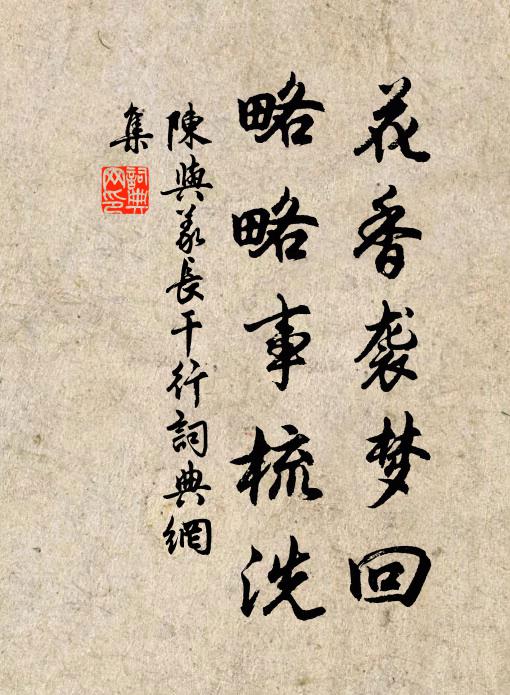 花香袭梦回
略略事梳洗
陳與義長干行詞典網
集
詞典
网印